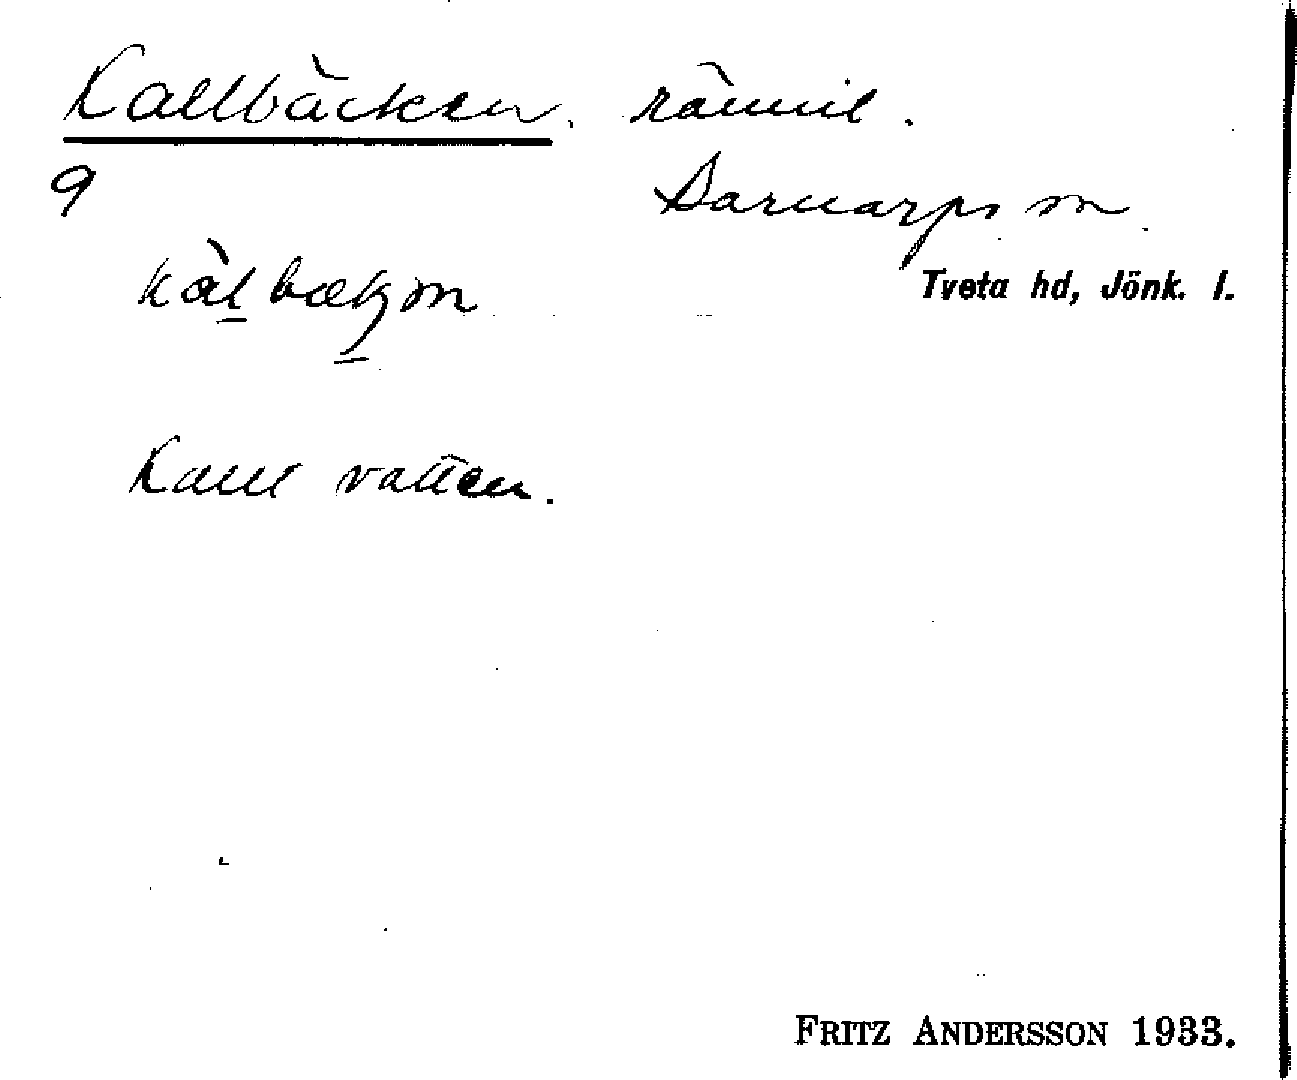 Kallbäcken. rännil.
9
Barnarps sn
kàlbækən
Tveta hd, Jönk. l.
Kallt vatten.
FRITZ ANDERSSON 1933.